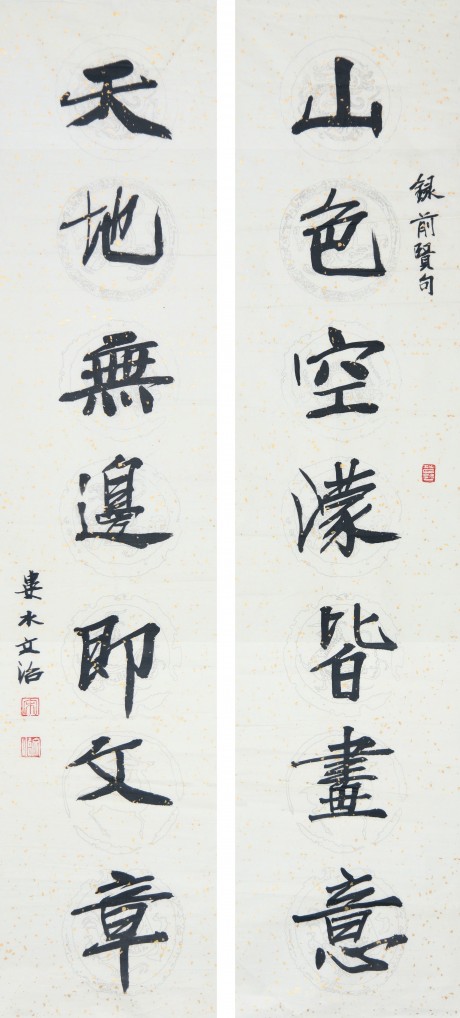 錄前賢句
山色空濛皆畫意
天地無邊即文章
婁水文治